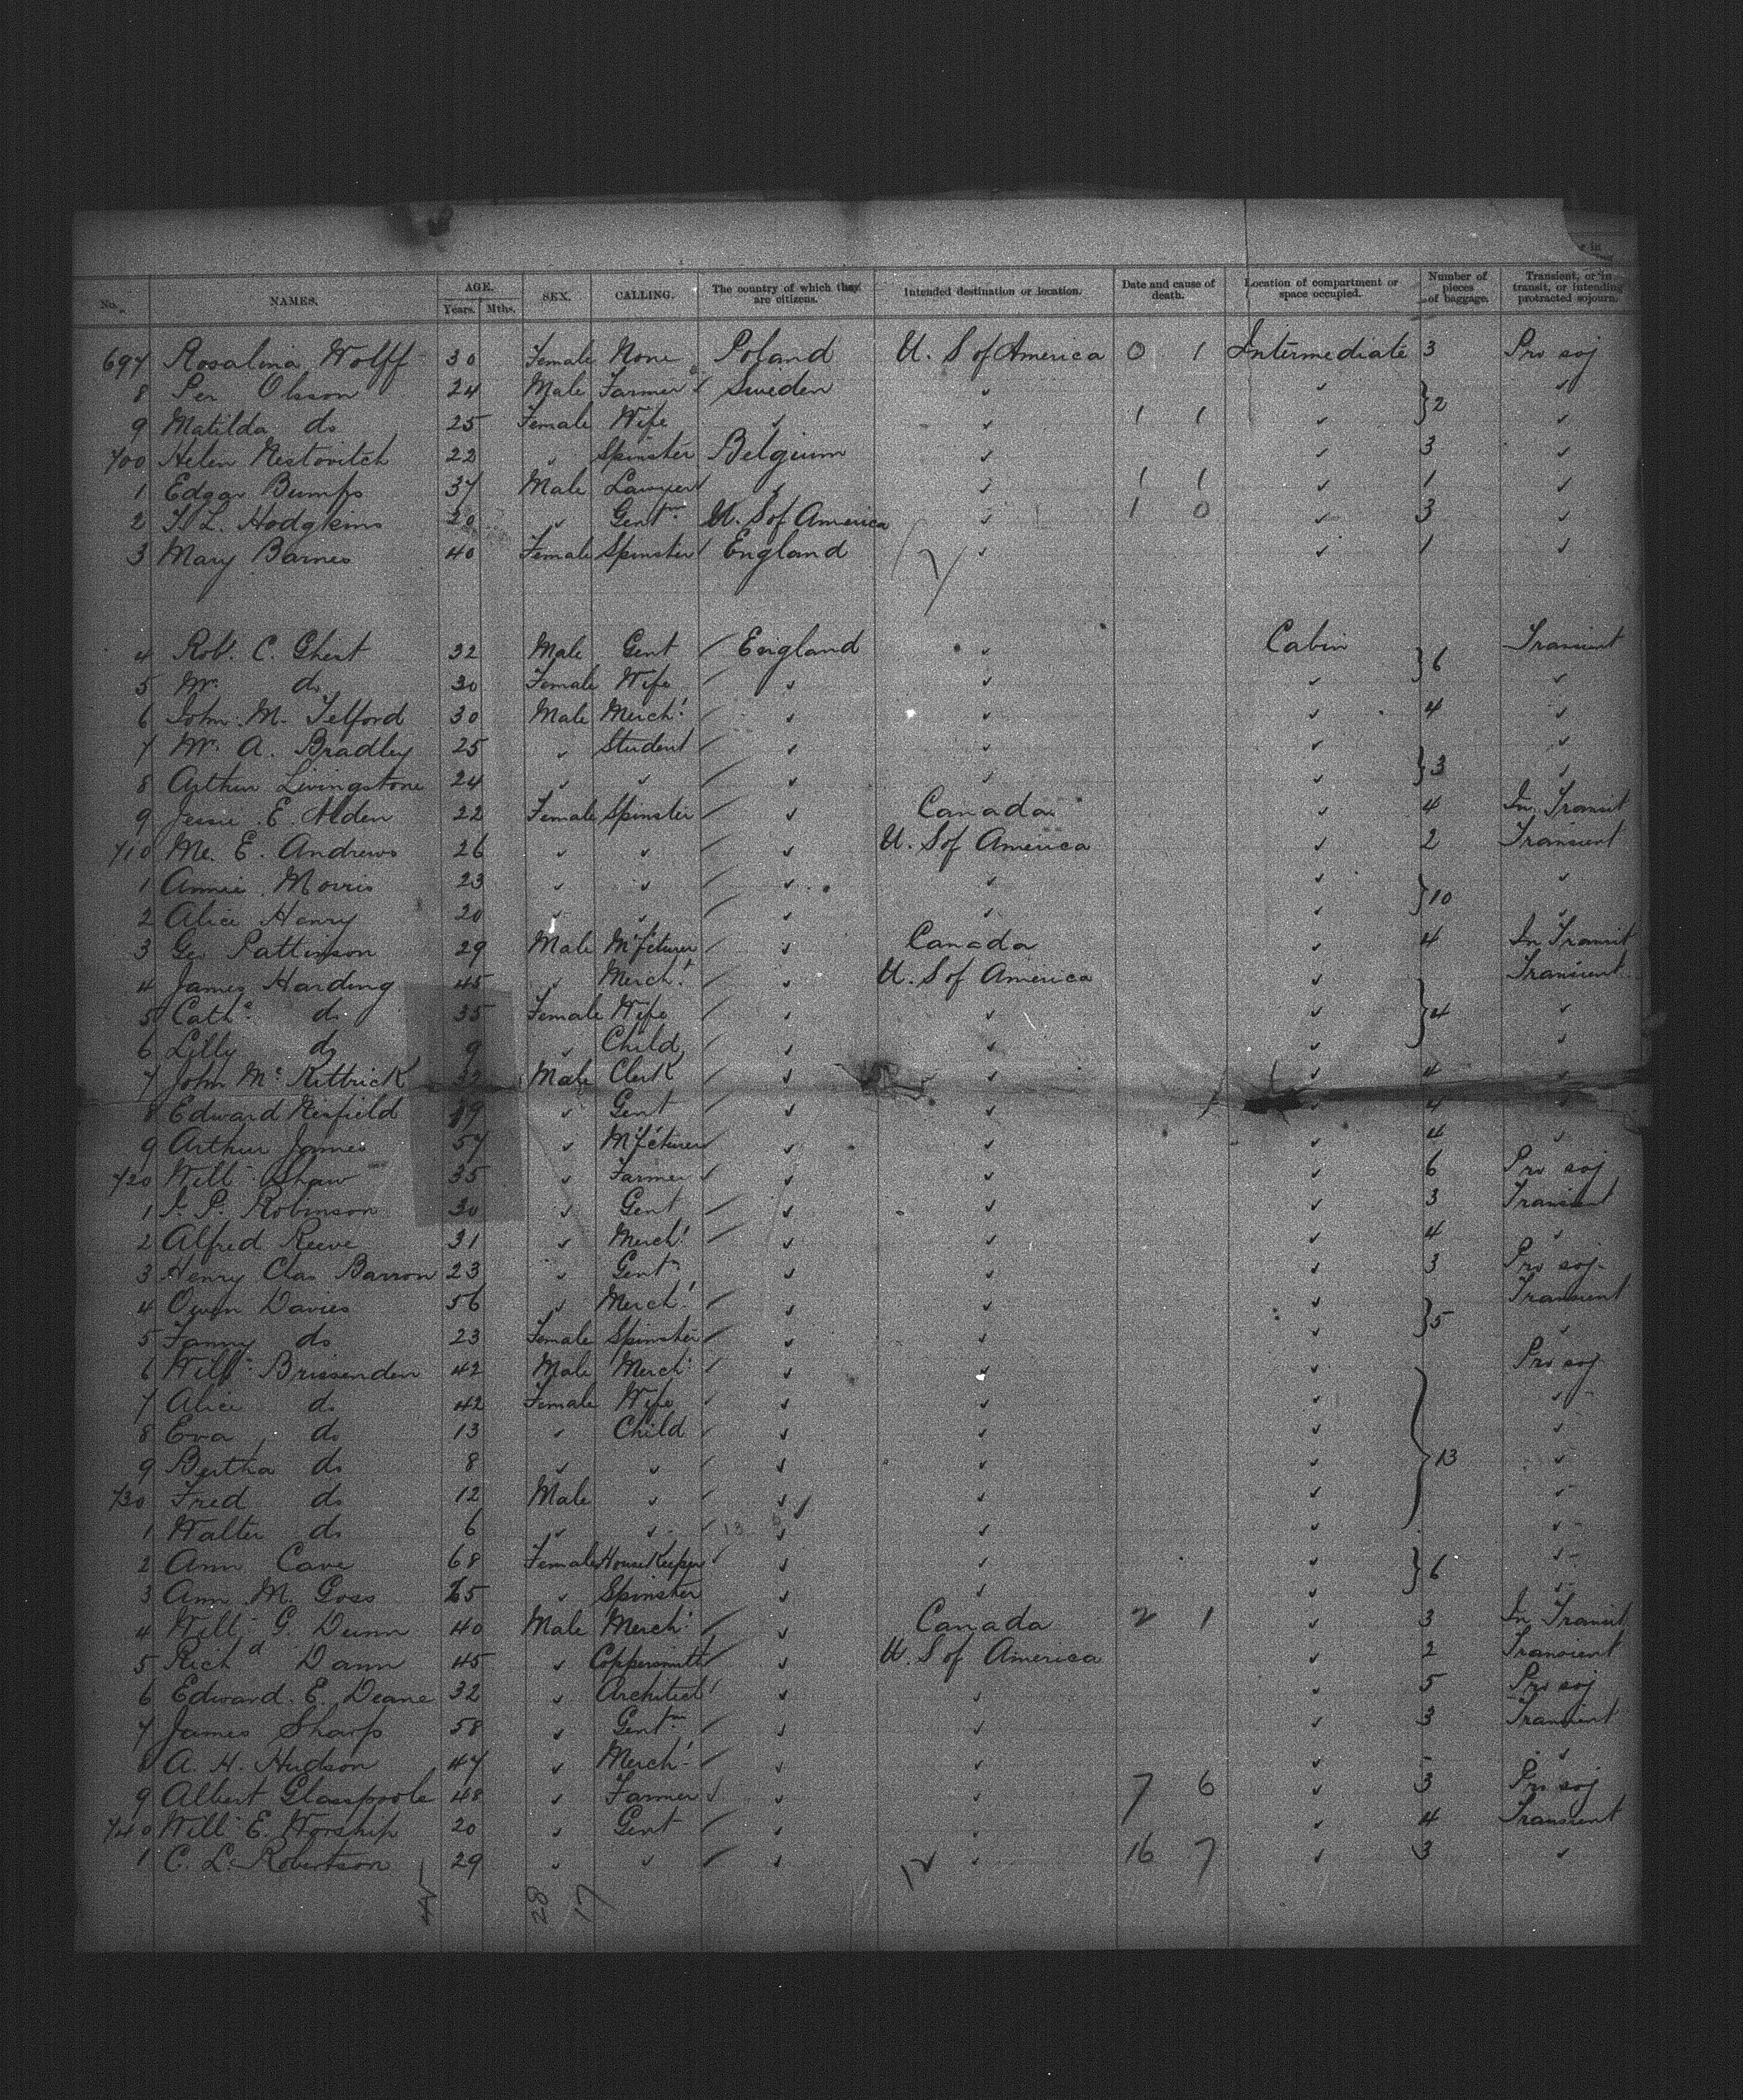 r in
No. NAMES. AGE. Years. Mths. SEX. CALLING. The country of which they are citizens. Intended destination or location. Date and cause of death. Location of compartment or space occupied. Number of pieces of baggage. Transient, or in transit, or intending protracted sojourn.
697 Rosalina Wolff 30 Female None Poland U. S of America 0 1 Intermediate 3 Pro soj
8 Per Olsson 24 Male Farmer ✓ Sweden ✓ ✓ } 2 ✓
9 Matilda do 25 Female Wife ✓ ✓ 1 1 ✓ ✓
700 Helen Nestovitch 22 ✓ Spinster Belgium ✓ ✓ 3 ✓
1 Edgar Bumps 37 Male Lawyer ✓ ✓ ✓ 1 1 ✓ 1 ✓
2 L. Hodgkins 20 ✓ Gentm U. S of America ✓ 1 0 ✓ 3 ✓
3 Mary Barnes 40 Female Spinster England 7 ✓ ✓ 1 ✓
4 Robt. C. Ghest 32 Male Gent England ✓ Cabin } 6 Transient
5 Mrs do 30 Female Wife ✓ ✓ ✓ ✓
6 John M. Telford 30 Male Mercht ✓ ✓ ✓ 4 ✓
7 Wm. A. Bradley 25 ✓ Student ✓ ✓ ✓ } 3 ✓
8 Arthur Livingstone 24 ✓ ✓ ✓ ✓ ✓ ✓
9 Jessie E. Alden 22 Female Spinster ✓ Canada ✓ 4 In Transit
710 Me. E. Andrews 26 ✓ ✓ ✓ U. S of America ✓ 2 Transient
1 Annie Morris 23 ✓ ✓ ✓ ✓ ✓ } 10 ✓
2 Alice Henry 20 ✓ ✓ ✓ ✓ ✓ ✓
3 Geo Pattinson 29 Male M'fcturer ✓ Canada ✓ 4 In Transit
4 James Harding 45 ✓ Mercht ✓ U. S of America ✓ } 4 Transient
5 Cathe do 35 Female Wife ✓ ✓ ✓ ✓
6 Lilly do 9 ✓ Child ✓ ✓ ✓ ✓
7 John Mc Kittrick 32 Male Clerk ✓ ✓ ✓ 4 ✓
8 Edward 19 ✓ Gent ✓ ✓ ✓ 4 ✓
9 Arthur James 57 ✓ M'fcturer ✓ ✓ ✓ 4 ✓
720 Willm Shaw 35 ✓ Farmer ✓ ✓ ✓ ✓ 6 Pro soj
1 P. Robinson 30 ✓ Gent ✓ ✓ ✓ 3 Transient
2 Alfred Reeve 31 ✓ Mercht ✓ ✓ ✓ 4 ✓
3 Henry Chas Barron 23 ✓ Gentn ✓ ✓ ✓ 3 Pro soj
4 Owen Davies 56 ✓ Mercht ✓ ✓ ✓ } 5 Transient
5 Fanny do 23 Female Spinster ✓ ✓ ✓ ✓
6 Willm Brissenden 42 Male Mercht ✓ ✓ ✓ } 13 Pro soj
7 Alice do 42 Female Wife ✓ ✓ ✓ ✓
8 Eva do 13 ✓ Child ✓ ✓ ✓ ✓
9 Bertha do 8 ✓ ✓ ✓ ✓ ✓ ✓
730 Fred do 12 Male ✓ ✓ ✓ ✓ ✓
1 Walter do 6 ✓ ✓ 13 ✓ ✓ ✓ ✓
2 Ann Cave 68 Female HouseKeeper ✓ ✓ ✓ ✓ } 6 ✓
3 Ann M. Goss 65 ✓ Spinster ✓ ✓ ✓ ✓
4 Willm G. Dunn 40 Male Mercht ✓ Canada 2 1 ✓ 3 In Transit
5 Richd Dann 45 ✓ Coppersmith ✓ U. S of America ✓ 2 Transient
6 Edward. E. Deane 32 ✓ Architect ✓ ✓ ✓ 5 Pro soj
7 James Sharp 58 ✓ Gentm ✓ ✓ ✓ 3 Transient
8 A. H. Hudson 47 ✓ Mercht ✓ ✓ ✓ - ✓
9 Albert Glasspoole 48 ✓ Farmer ✓ ✓ ✓ 7 6 ✓ 3 Pro soj
740 Willm E. Worship 20 ✓ Gent ✓ ✓ ✓ 4 Transient
1 C. L. Robertson 29 ✓ ✓ ✓ ✓ 16 7 ✓ 3 ✓
28 17